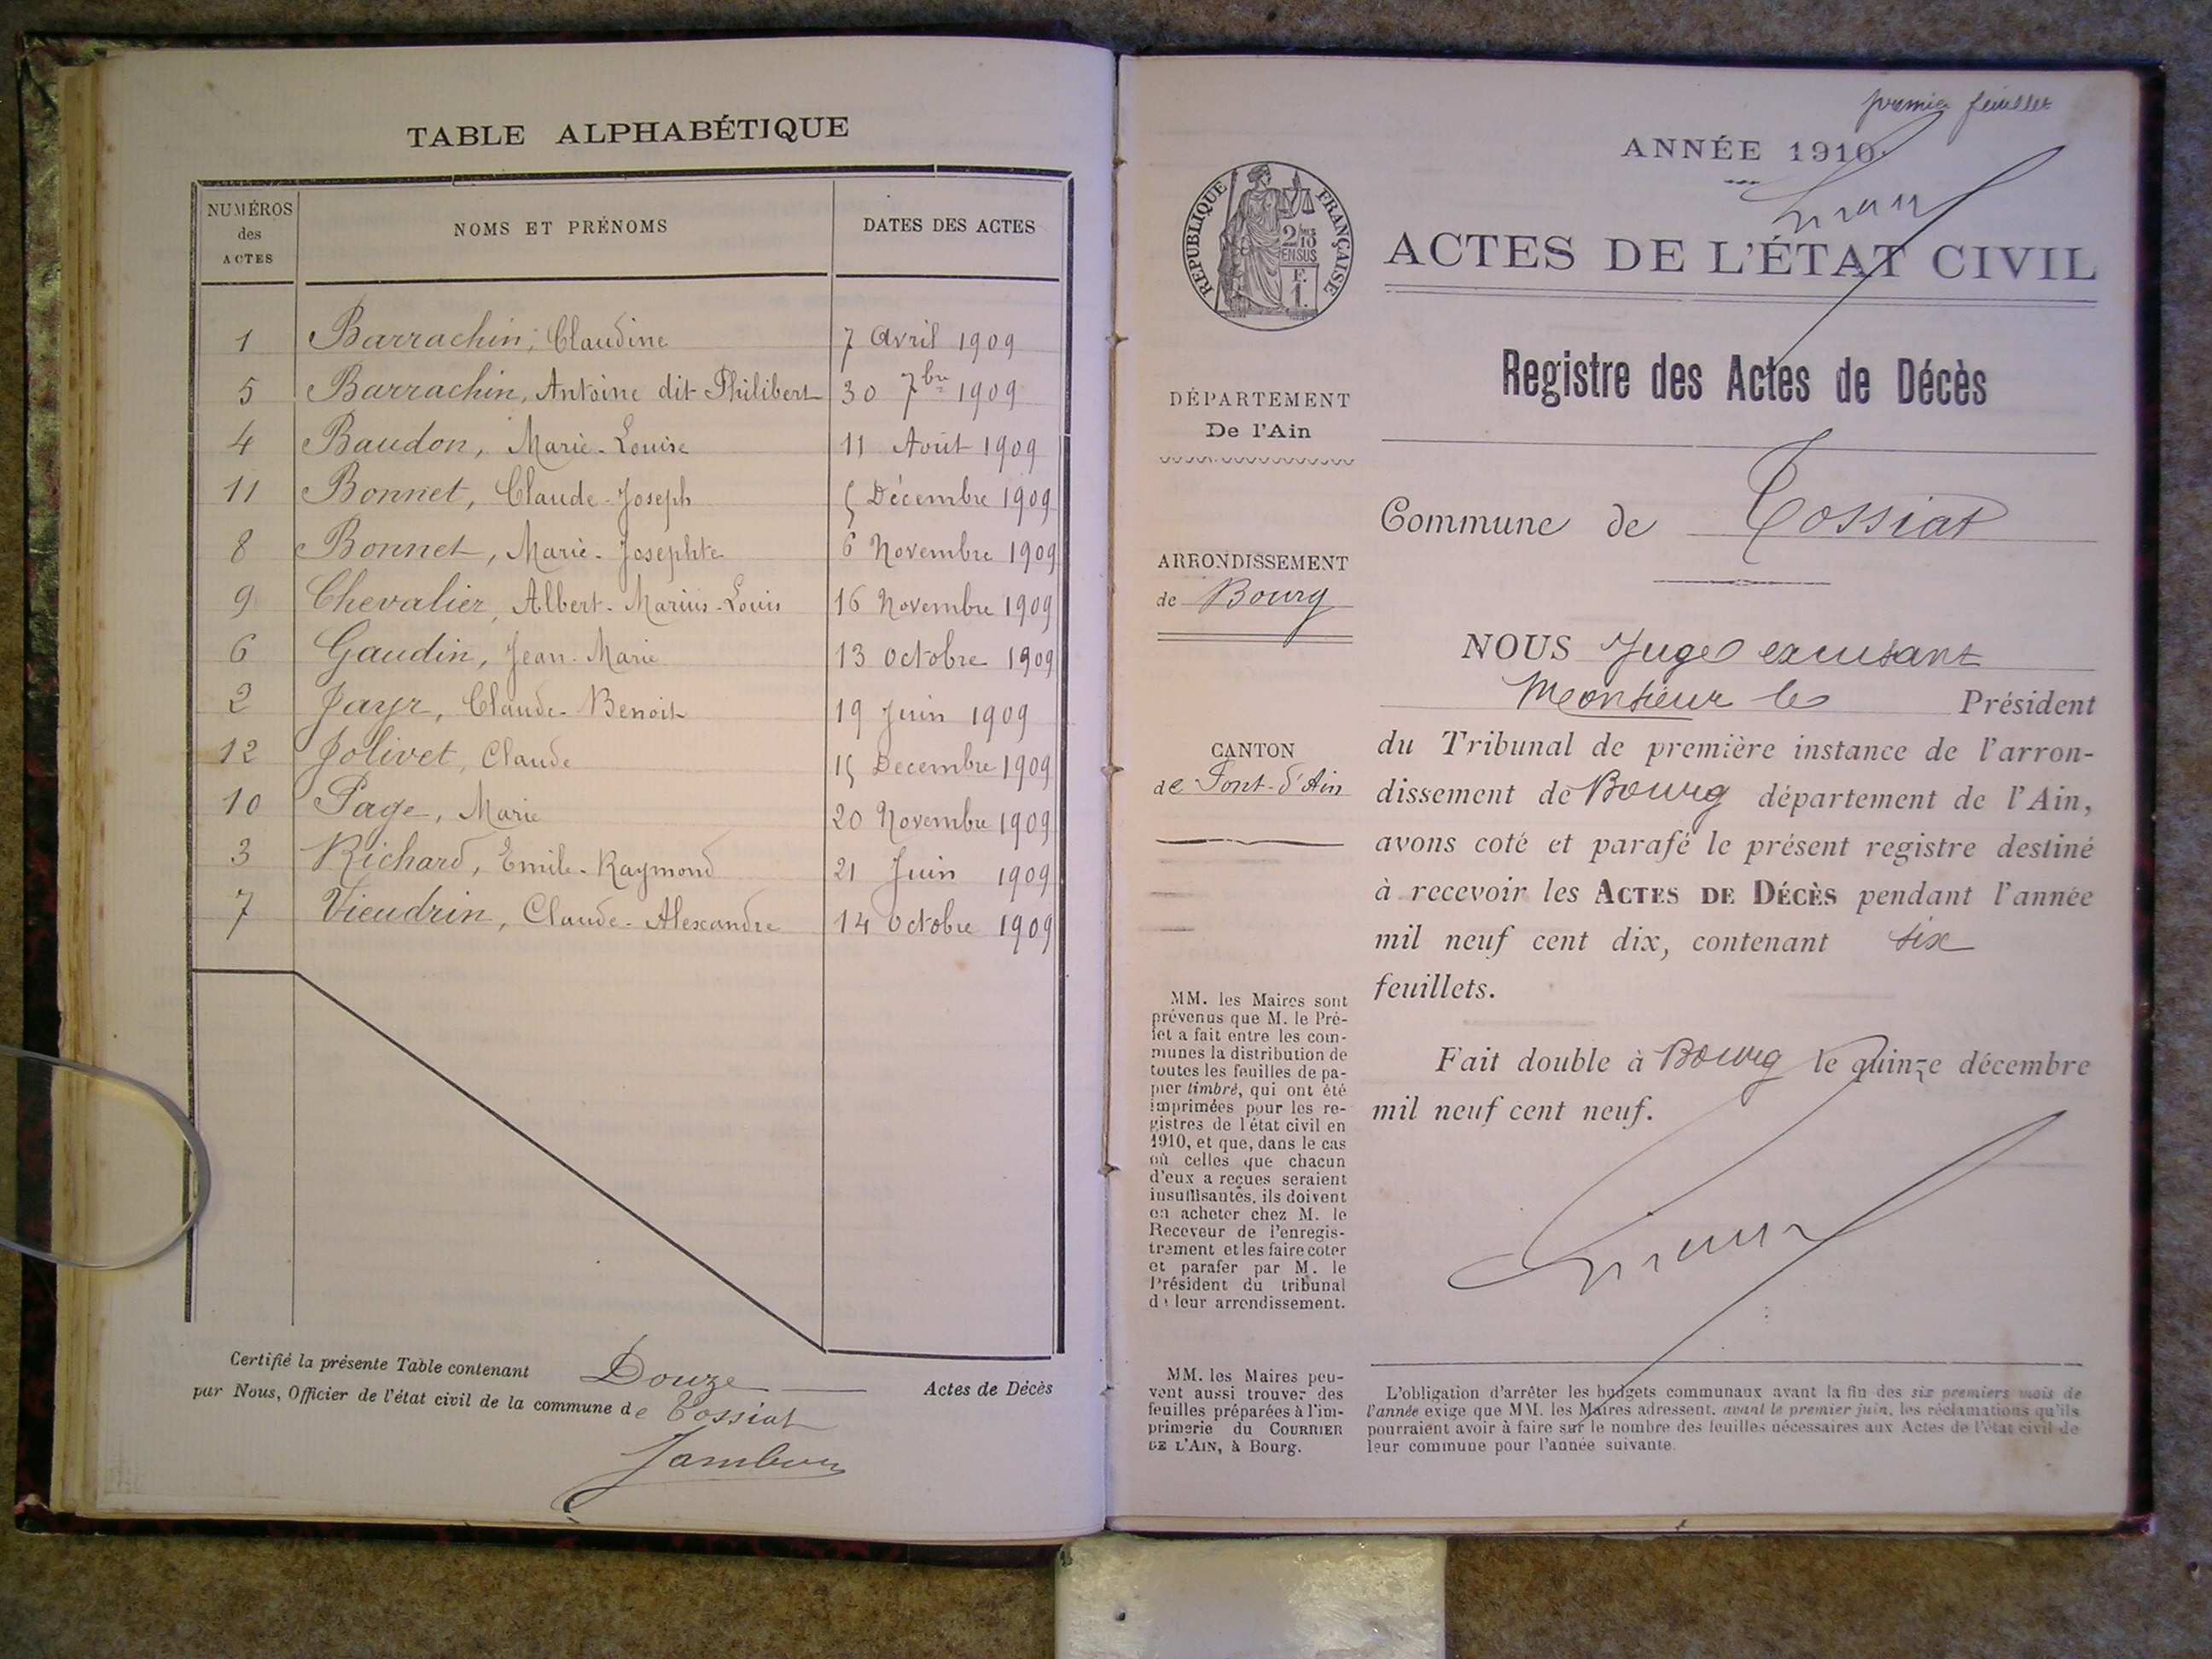 TABLE ALPHABÉTIQUE
NUMÉROS des ACTES
NOMS ET PRÉNOMS
DATES DES ACTES
1 Barrachin, Claudine 7 Avril 1909
5 Barrachin, Antoine dit Philibert 30 7bre 1909
4 Baudon, Marie-Louise 11 Août 1909
11 Bonnet, Claude-Joseph 5 Décembre 1909
8 Bonnet, Marie-Josephte 6 Novembre 1909
9 Chevalier, Albert-Marius-Louis 16 Novembre 1909
6 Gaudin, Jean-Marie 13 Octobre 1909
2 Jayr, Claude-Benoit 19 Juin 1909
12 Jolivet, Claude 15 Décembre 1909
10 Page, Marie 20 Novembre 1909
3 Richard, Emile-Raymond 21 Juin 1909
7 Vieudrin, Claude-Alexandre 14 Octobre 1909
Certifié la présente Table contenant Douze Actes de Décès
par Nous, Officier de l'état civil de la commune de Tossiat
premier feuillet
ANNÉE 1910.
RÉPUBLIQUE FRANÇAISE
2/10
EN SUS
F.
1.
ACTES DE L'ÉTAT CIVIL
Registre des Actes de Décès
DÉPARTEMENT
De l'Ain
Commune de Tossiat
ARRONDISSEMENT
de Bourg
CANTON
de Pont-d'Ain
NOUS Juge excusant
Monsieur le Président
du Tribunal de première instance de l'arron-
dissement de Bourg département de l'Ain,
avons coté et parafé le présent registre destiné
à recevoir les ACTES DE DÉCÈS pendant l'année
mil neuf cent dix, contenant six
feuillets.
Fait double à Bourg le quinze décembre
mil neuf cent neuf.
MM. les Maires sont
prévenus que M. le Pré-
fet a fait entre les com-
munes la distribution de
toutes les feuilles de pa-
pier timbré, qui ont été
imprimées pour les re-
gistres de l'état civil en
1910, et que, dans le cas
où celles que chacun
d'eux a reçues seraient
insuffisantes, ils doivent
en acheter chez M. le
Receveur de l'enregis-
trement et les faire coter
et parafer par M. le
Président du tribunal
de leur arrondissement.
MM. les Maires peu-
vent aussi trouver des
feuilles préparées à l'im-
primerie du COURRIER
DE L'AIN, à Bourg.
L'obligation d'arrêter les budgets communaux avant la fin des six premiers mois de
l'année exige que MM. les Maires adressent, avant le premier juin, les réclamations qu'ils
pourraient avoir à faire sur le nombre des feuilles nécessaires aux Actes de l'état civil de
leur commune pour l'année suivante.